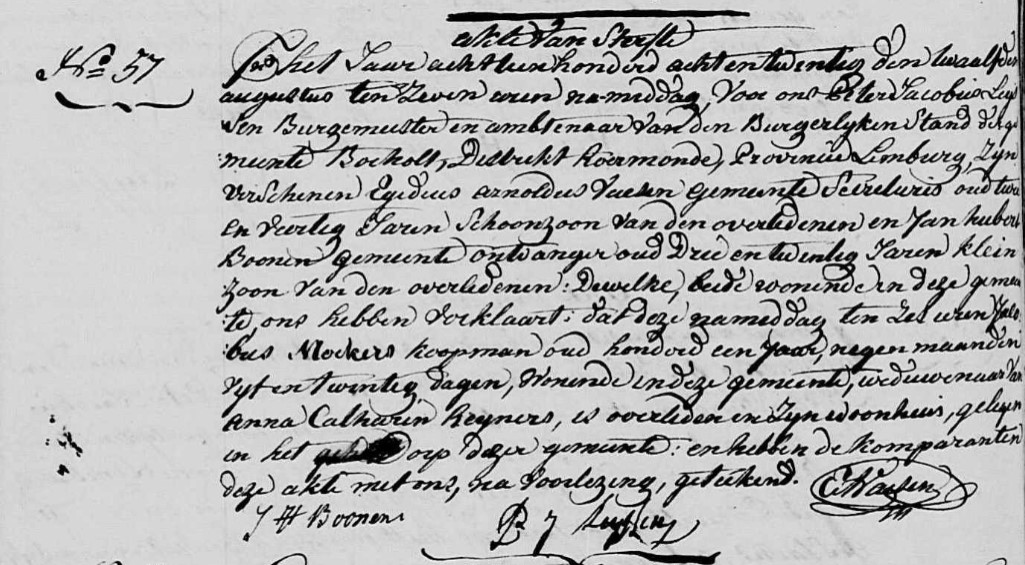 akte Van Sterfte
No. 57
In het Jaar achttienhonderd acht en twentig den twaalfden
augustus ten Zeven uren na-middag, Voor ons Peter Jacobus Luy
sen Burgemeester en ambtenaar Van den Burgerlyken Stand der ge
meente Bocholt, Distrikt Roermonde, Provincie Limburg, Zyn
verschenen Egidius arnoldus Vaesen gemeente Secretaris oud twee
en veertig Jaren Schoonzoon Van den overledenen en Jan hubert
Boonen gemeente ontvanger oud Drie en twentig Jaren klein
zoon Van den overledenen: Dewelke, beide woonende in deze gemeen
te, ons hebben Verklaart: dat deze namiddag ten Zes uren Jaco
bus Mockers koopman oud honderd een Jaar, negen maanden
Vyf en twintig dagen, Wonende in deze gemeente, weduwenaar Van
Anna Catharin Reyners, is overleden in Zyn woonhuis, gelegen
in het dorp dezer gemeente: en hebben de komparanten
deze akte met ons, na Voorlezing, geteekend. E A Vaesen
J H Boonen P J Luysen